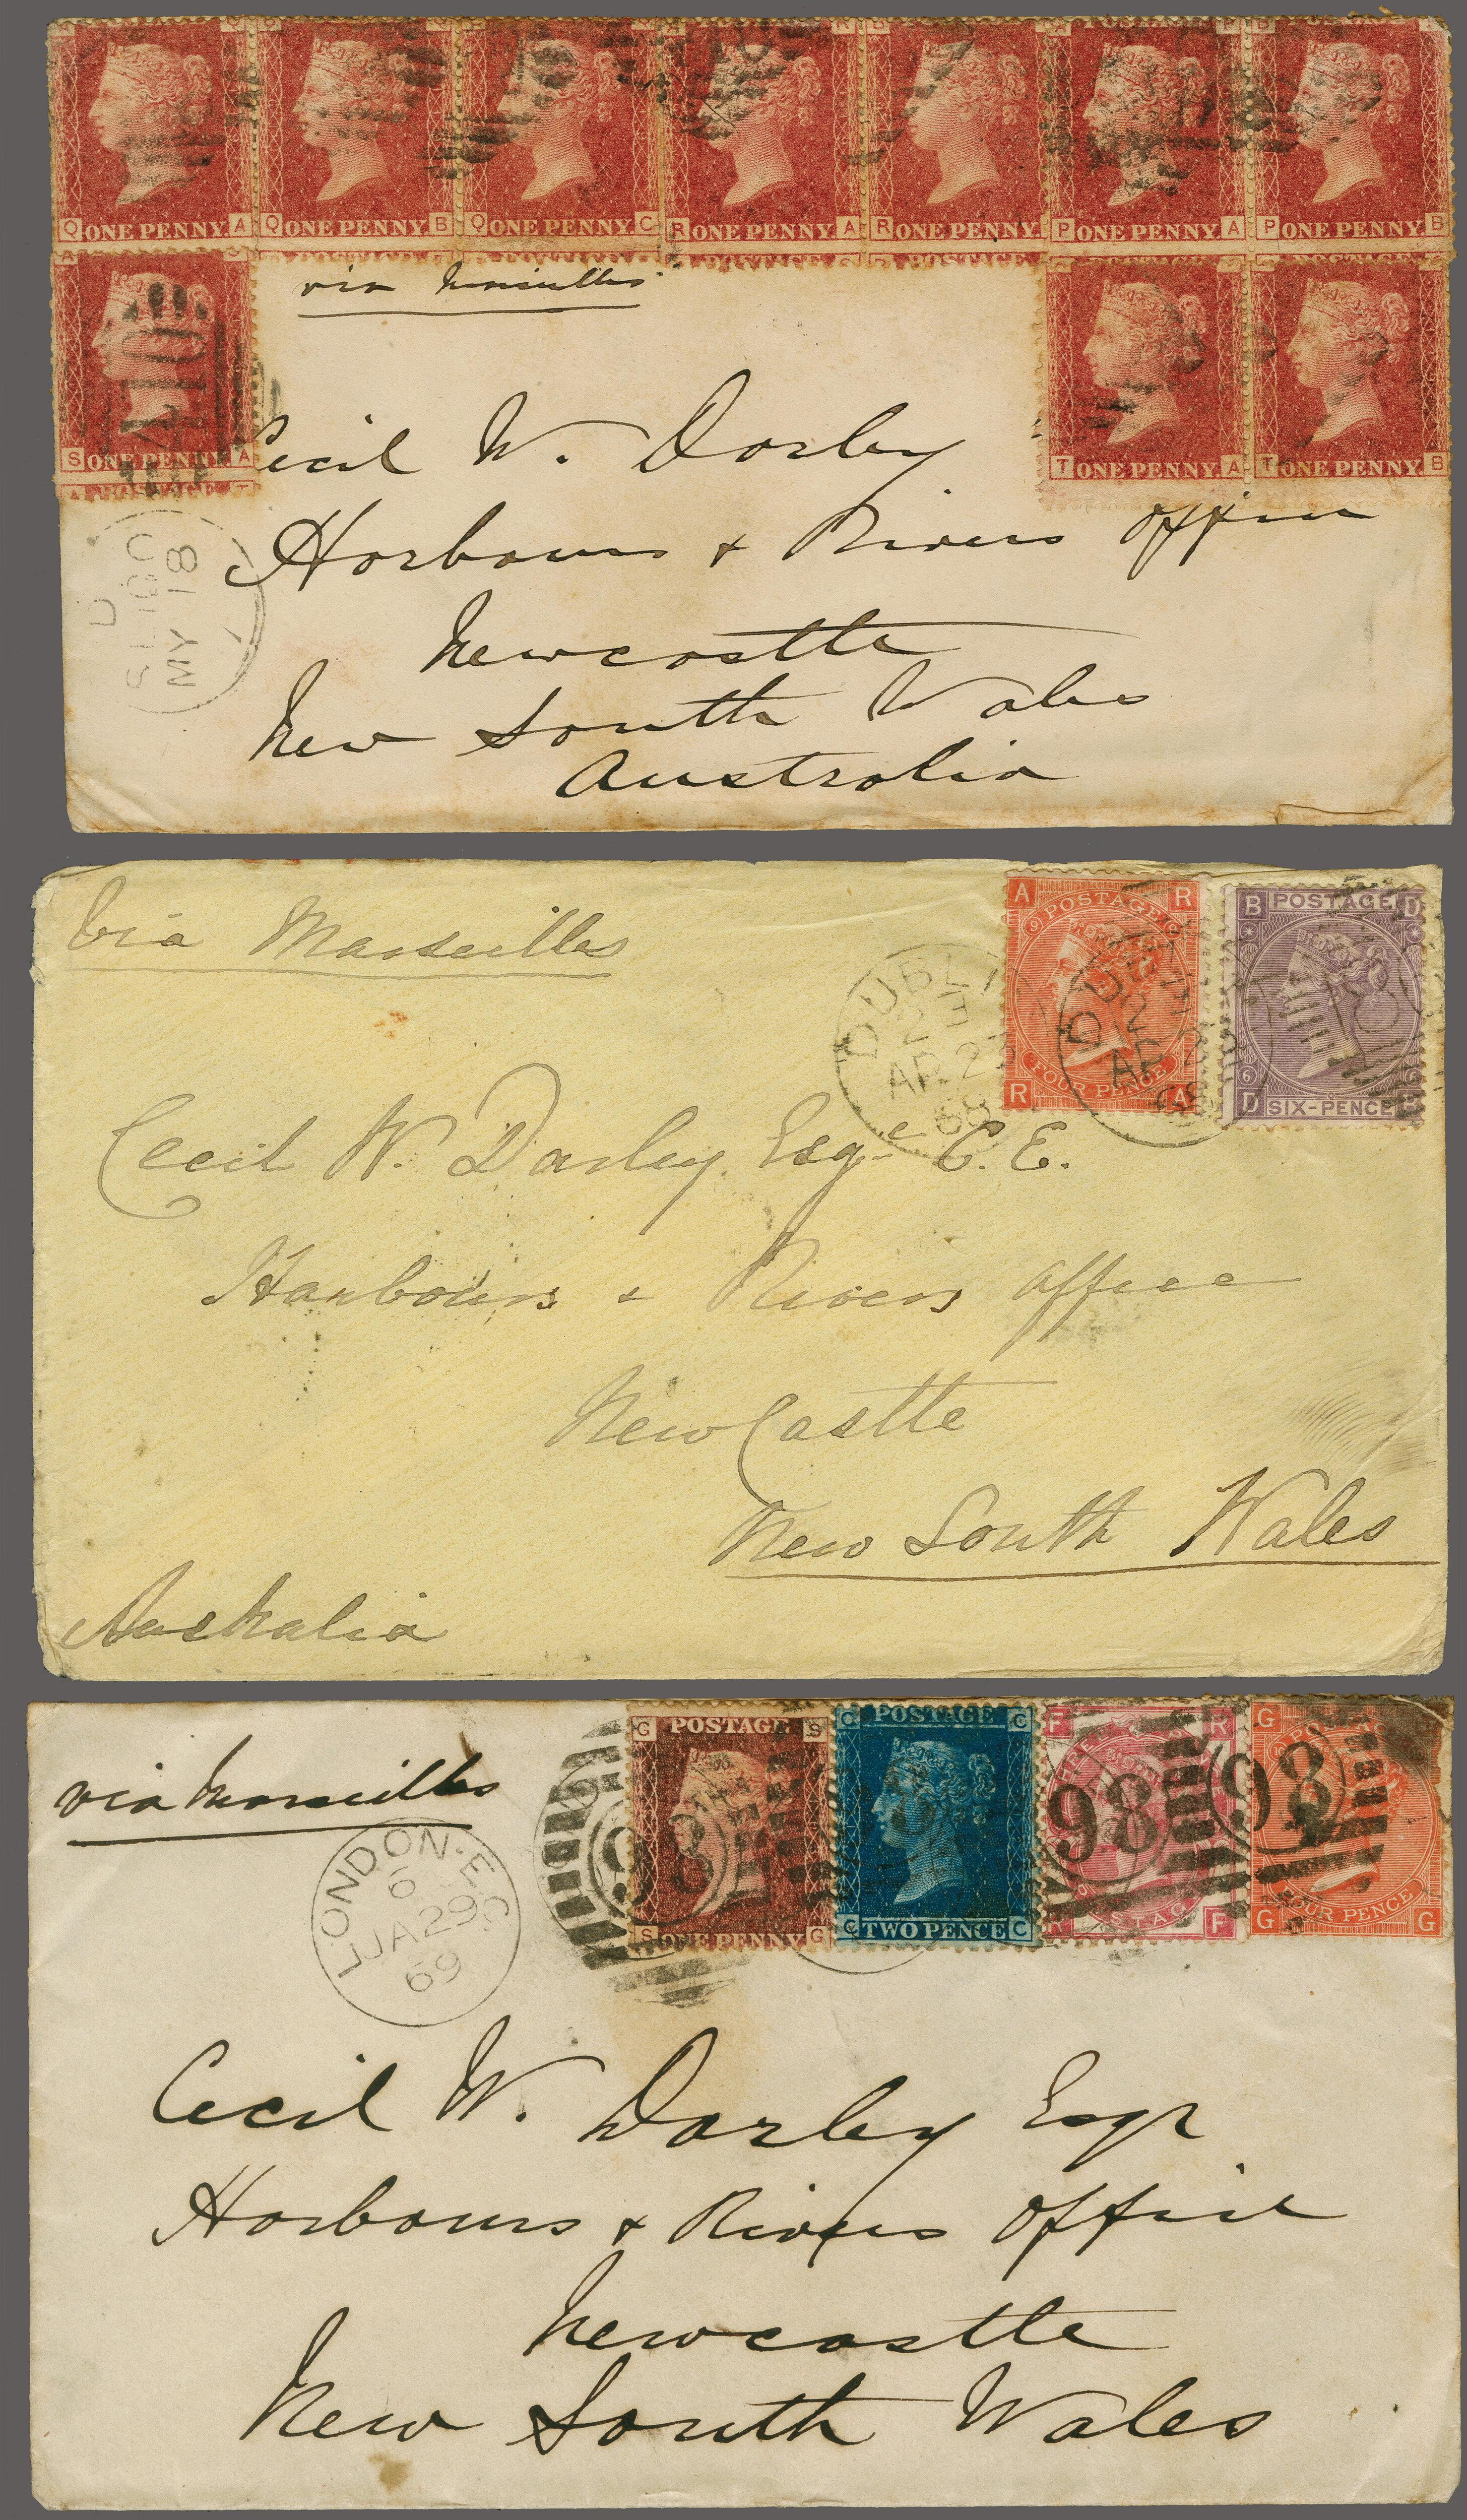 Q ONE PENNY A Q ONE PENNY B Q ONE PENNY C R ONE PENNY A R ONE PENNY P ONE PENNY A P ONE PENNY B
via Marseilles
S ONE PENNY A T ONE PENNY A T ONE PENNY B
Cecil W. Darley
Harbours & Rivers Office
Newcastle
New South Wales
Australia
SLIGO
MY 18
A POSTAGE R
9 9
FOUR PENCE
R A
B POSTAGE D
6 6
D SIX-PENCE B
Via Marseilles
DUBLIN
2 E
AP 2
68
DUBLIN
2
AP
68
Cecil W. Darley Esqre C.E.
Harbours & Rivers Office
NewCastle
New South Wales
Australia
G POSTAGE S
S ONE PENNY G
C POSTAGE C
C TWO PENCE C
F R
R POSTAGE F
G
G FOUR PENCE G
98 98 98
via Marseilles
LONDON·E.C
6
JA 29
69
Cecil W. Darley Esqr
Harbours & Rivers Office
Newcastle
New South Wales